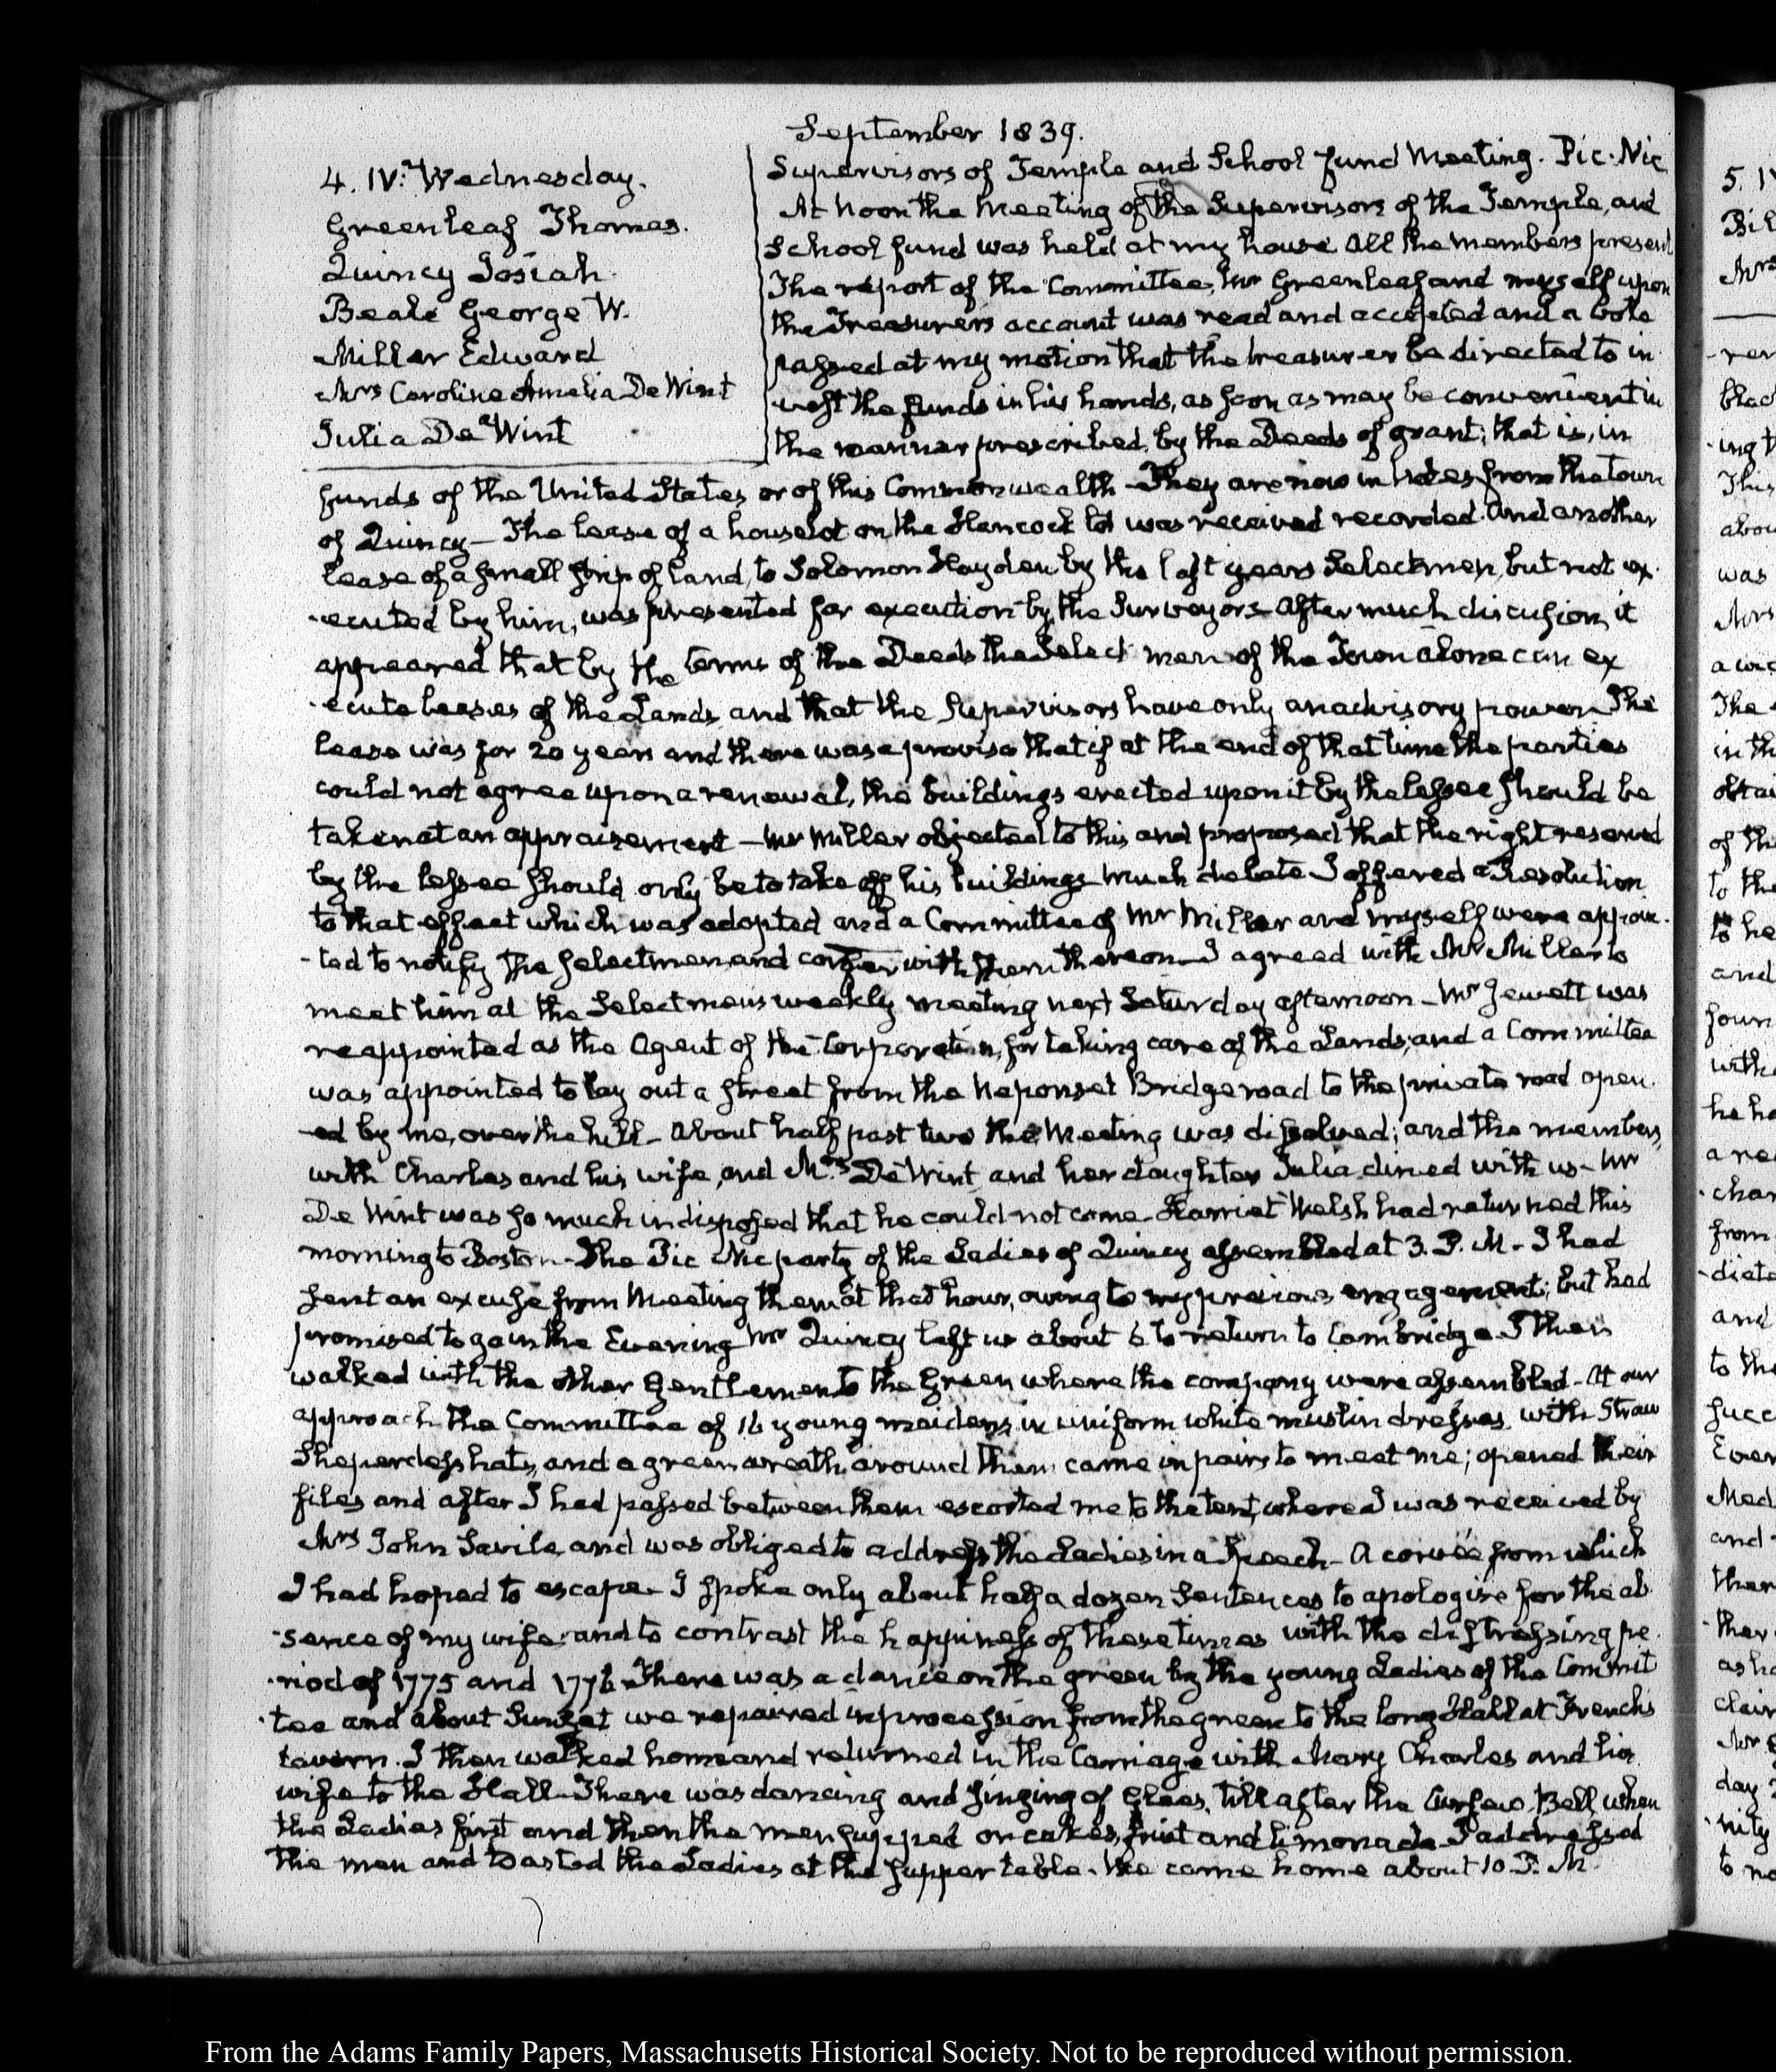 September 1839.
4. IV. Wednesday.
Greenleaf Thomas.
Quincy Josiah.
Beale George W.
Miller Edward
Mrs Caroline Amelia De Wint
Julia De Wint
Supervisors of Temple and School fund Meeting. Pic-Nic
At Noon the Meeting of the Supervisors of the Temple, and
School fund was held at my house All the members present
The report of the Committee, Mr Greenleaf and myself upon
the Treasurers account was read and accepted and a vote
passed at my motion that the treasurer be directed to in
vest the funds in his hands, as soon as may be convenient in
the manner prescribed by the Deeds of grant; that is, in
funds of the United States, or of this Commonwealth - They are now in notes from the town
of Quincy - The lease of a house lot on the Hancock lot was received recorded. And another
lease of a small strip of land, to Solomon Hayden by the last years Selectmen, but not ex-
-ecuted by him, was presented for execution by the Surveyors - After much discussion, it
appeared that by the terms of the Deeds the Select men of the Town alone can ex
-ecute leases of the Lands and that the Supervisors have only an advisory power - The
lease was for 20 years and there was a proviso that if at the end of that time the parties
could not agree upon a renewal, the buildings erected upon it by the lessee should be
taken at an appraisement - Mr Miller objected to this and proposed that the right reserved
by the lessee should only be to take off his buildings - Much debate - I offered a Resolution
to that effect which was adopted and a Committee of Mr Miller and myself were appoin-
-ted to notify the Selectmen, and confer with them thereon - I agreed with Mr Miller to
meet him at the Selectmen's weekly meeting next Saturday afternoon - Mr Jewett was
reappointed as the Agent of the Corporation, for taking care of the Lands; and a Committee
was appointed to lay out a street from the Neponset Bridge road to the private road open-
-ed by me, over the hill - About half past two the Meeting was dissolved; and the members,
with Charles and his wife, and Mrs De Wint, and her daughter Julia dined with us - Mr
De Wint was so much indisposed that he could not come - Harriet Welsh had returned this
morning to Boston - The Pic Nic party of the Ladies of Quincy assembled at 3. P. M. - I had
sent an excuse from Meeting them at that hour, owing to my previous engagement; but had
promised to go in the Evening Mr Quincy left us about 6 to return to Cambridge. I then
walked with the other Gentlemen to the Green where the company were assembled - At our
approach the Committee of 16 young maidens, in uniform white muslin dresses, with Straw
Sheperdess hats, and a green wreath around them came in pairs to meet me; opened their
files and after I had passed between them escorted me to the tent, where I was received by
Mrs John Savile, and was obliged to address the Ladies in a Speech - A corvée from which
I had hoped to escape - I spoke only about half a dozen Sentences to apologise for the ab-
-sence of my wife: and to contrast the happiness of these times with the distressing pe-
-riod of 1775 and 1776 - There was a dance on the green by the young Ladies of the Commit
-tee and about Sunset we repaired in procession from the green to the long Hall at French's
tavern. I then walked home and returned in the Carriage with Mary Charles and his
wife to the Hall - There was dancing and singing of Glees, till after the Curfew Bell, when
the Ladies first and then the men supped on cakes, fruit and limonade - I addressed
the men and toasted the Ladies at the supper table. We came home about 10 P. M.
5. IV
Bil
Mrs
From the Adams Family Papers, Massachusetts Historical Society. Not to be reproduced without permission.